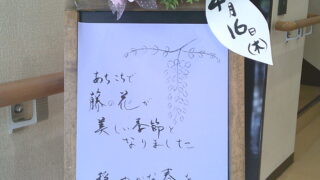 4月
16日(木)
あちこちで
藤の花が
美しい季節と
なりました